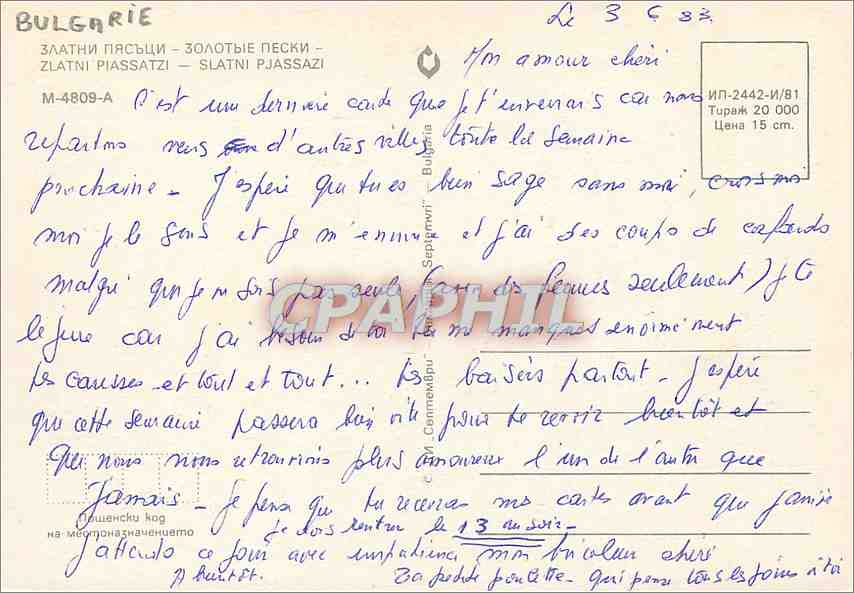 BULGARIE
Le 3 6 83.
ЗЛАТНИ ПЯСЪЦИ – ЗОЛОТЫЕ ПЕСКИ –
ZLATNI PIASSATZI – SLATNI PJASSAZI
Mon amour chéri
М-4809-А
ИП-2442-И/81
Тираж 20 000
Цена 15 ст.
C'est une dernière carte que je t'enverrais car nous
repartons vers d'autres villes toute la semaine
prochaine – J'espère que tu es bien sage sans moi, crois moi
moi je le suis et je m'ennuie et j'ai des coups de cafards
malgré que je ne sois pas seule, (avec des femmes seulement) je te
le jure car j'ai besoin de toi tu me manques énormément
tes caresses et tout et tout... tes baisers partout – J'espère
que cette semaine passera bien vite pour te revoir bientôt et
que nous nous retrouvions plus amoureux l'un de l'autre que
Jamais – Je pense que tu recevras mes cartes avant que j'arrive
je dois rentrer le 13 au soir –
J'attends ce jour avec impatience mon bricoleur chéri
A bientôt.
Ta petite poulette – qui pense tous les jours à toi
Пощенски код
на местоназначението
"Септември"
Septemvri" – Bulgaria
CPAPHIL